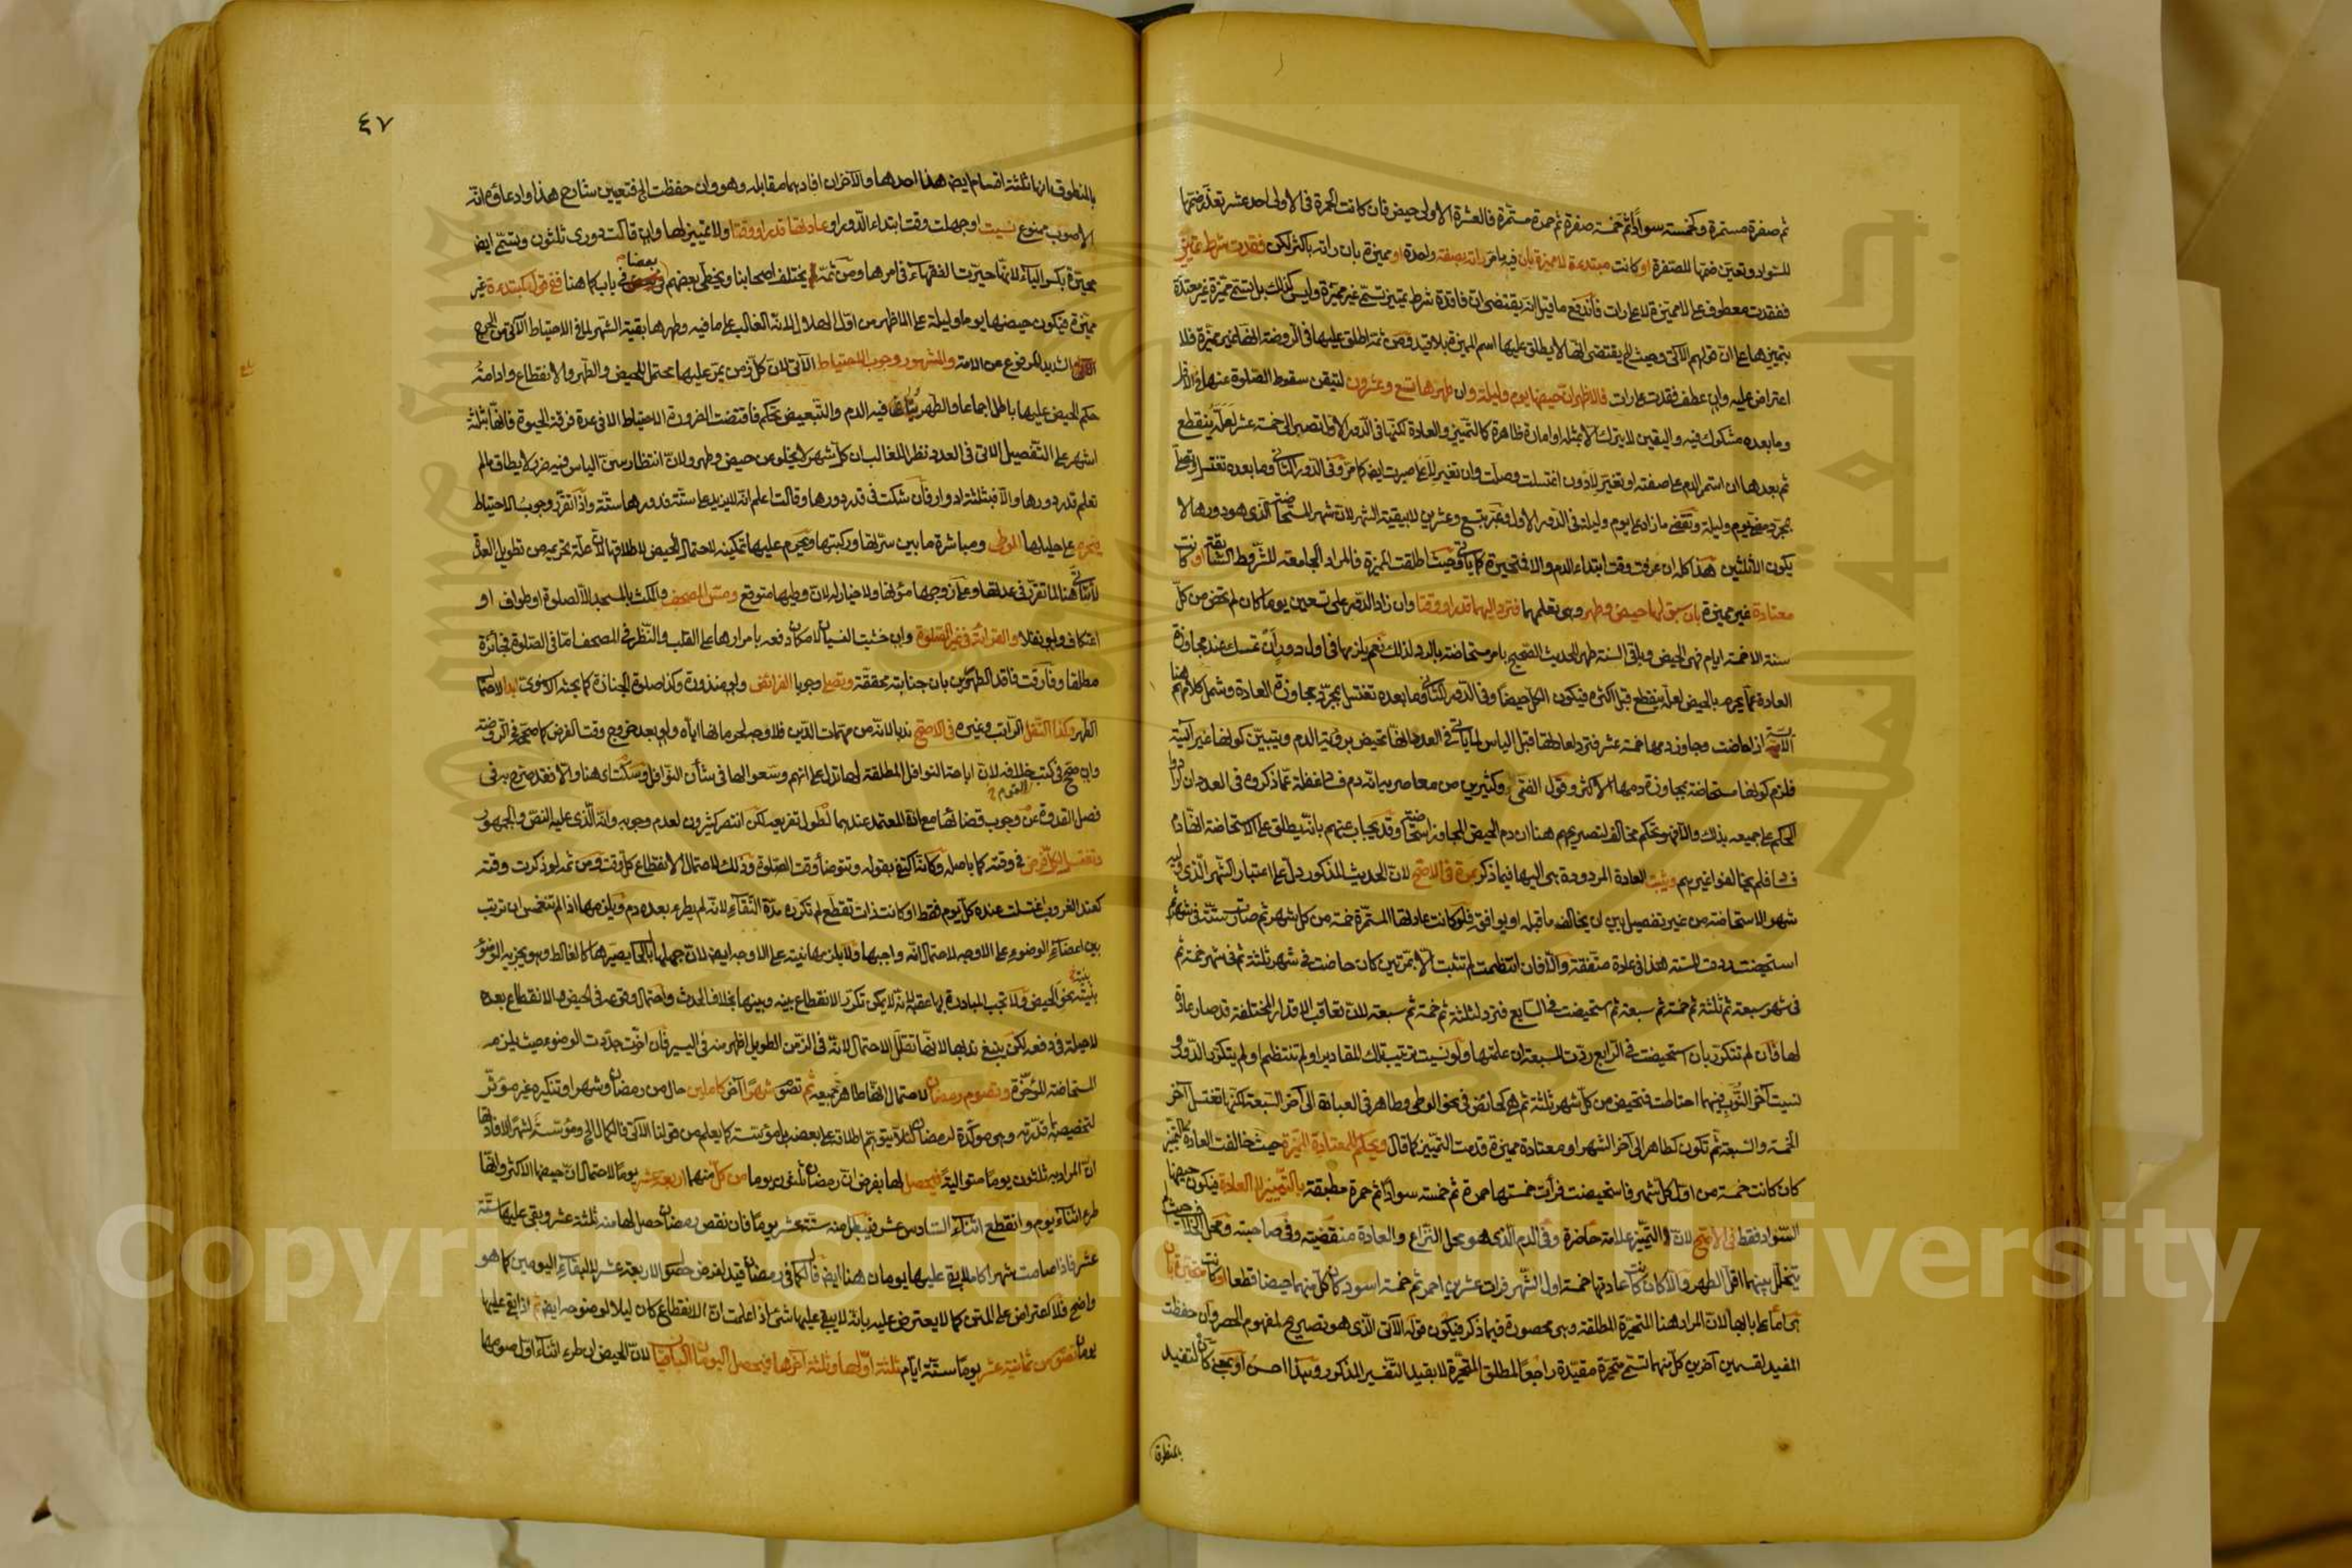 ثم صفرة مستمرة وكخمسة سوادا ثم خمسة صفرة ثم حمرة مستمرة فالعشرة الاولى حيض فان كانت الحمرة في الاولى احد عشر تعذر ضمها
للسواد وتعين ضمها للصفرة او كانت مبتدءة لا مميزة بان فيه ما مر راته بصفة واحدة او مميزة بان راته باكثر لكن فقدت شرط تمييز
ففقدت معطوف على لا مميزة لا على رات فاندفع ما قيل انه يقتضي ان فاقدة شرط تمييز تسمى غير مميزة وليس كذلك بل تسمى مميزة غير معتدة
بتمييزها على ان قولهم الآتي وحيث الخ يقتضي انها لا يطلق عليها اسم المميزة بلا قيد ومن ثمة اطلق عليها في الروضة انها غير مميزة فلا
اعتراض عليه وان عطف فقدت على رات فالاظهر ان حيضها يوم وليلة وان طهرها تسع وعشرون لتيقن سقوط الصلوة عنها في الاقل
وما بعده مشكوك فيه واليقين لا يترك الا بمثله او امارة ظاهرة كالتمييز والعادة لكنها في الدور الاول تصبر الى خمسة عشر لعله ينقطع
ثم بعدها ان استمر الدم على صفته او تغير لادون اغتسلت وصلت وان تغير لاعلى صبرت ايضا كما مر وفي الدور الثاني وما بعده تغتسل وتصلي
بمجرد مضي يوم وليلة وتقضي ما زاد على يوم وليلة في الدور الاول وعبر بتسع وعشرين لا ببقية الشهر لان شهر المستحاضة الذي هو دورها لا
يكون الا ثلثين هذا كله ان عرفت وقت ابتداء الدم والا فمتحيرة كما ياتي وحيث اطلقت المميزة فالمراد الجامعة للشروط السابقة او كانت
معتادة غير مميزة بان سبق لها حيض وطهر وهي تعلمهما فترد اليهما قدرا ووقتا وان زاد الدور على تسعين يوما كان لم تحض من كل
سنة الا خمسة ايام فهي الحيض وباقي السنة طهر للحديث الصحيح بامر مستحاضة بالرد لذلك نعم يلزمها في اول دور ان تمسك عند مجاوزة
العادة عما يحرم بالحيض لعله ينقطع قبل اكثره فيكون الكل حيضا وفي الدور الثاني وما بعده تغتسل بمجرد مجاوزة العادة وشمل كلامهم هنا
الآيسة اذا حاضت وجاوز دمها خمسة عشر فترد لعادتها قبل الياس لما ياتي في العدد انها تحيض برؤية الدم ويتبين كونها غير آيسة
فلزم كونها مستحاضة بمجاوزة دمها الاكثر وقول الفتى وكثيرين من معاصريه انه دم فساد غفلة عما ذكروه في العدد ان ارادوا
الحكم على جميعه بذلك والا فهو تحكم مخالف لتصريحهم هنا ان دم الحيض المجاوز استحاضة وقد يجاب عنهم بانه يطلق على الاستحاضة انها دم
فساد فلم يخالفوا غيرهم وتثبت العادة المردودة هي اليها فيما ذكر بمرة في الاصح لان الحديث المذكور دل على اعتبار الشهر الذي وليه
شهر الاستحاضة من غير تفصيل بين ان يخالف ما قبله او يوافقه فلو كانت عادتها المستمرة خمسة من كل شهر ثم صارت ستة في شهر ثم
استحيضت ردت للستة هذا في عادة متفقة والا فان انتظمت لم تثبت الا بمرتين كان حاضت في شهر ثلثة ثم في شهر خمسة ثم
في شهر سبعة ثم ثلثة ثم خمسة ثم سبعة ثم استحيضت في السابع فترد لثلثة ثم خمسة ثم سبعة لان تعاقب الاقدار المختلفة قد صار عادة
لها فان لم تتكرر بان استحيضت في الرابع ردت للسبعة ان علمتها ولو نسيت ترتيب تلك المقادير او لم تنتظم او لم يتكرر الدور و
نسيت آخر النوب فيهما احتاطت فتحيض من كل شهر ثلثة ثم هي كحائض في نحو الوطي وطاهر في العبادة الى آخر السبعة لكنها تغتسل آخر
الخمسة والسبعة ثم تكون كطاهر الى آخر الشهر او معتادة مميزة قدمت التمييز كما قال ويحكم للمعتادة المميزة حيث خالفت العادة التمييز
كان كانت خمسة من اول كل شهر فاستحيضت فرأت خمستها حمرة ثم خمسة سوادا ثم حمرة مطبقة بالتمييز لا العادة فيكون حيضها
السواد فقط في الاصح لان التمييز علامة حاضرة وفي الدم الذي هو محل النزاع والعادة منقضية وفي صاحبته ومحل الخلاف حيث لم
يتخلل بينهما اقل الطهر والا كان كانت عادتها خمسة اول الشهر فرات عشرين احمر ثم خمسة اسود كان كل منهما حيضا قطعا او كانت متحيرة بان
هي اما على بابها لان المراد هنا المتحيرة المطلقة وهي محصورة فيما ذكر فيكون قوله الآتي الذي هو تصريح لمفهوم الحصر وان حفظت
المفيد لقسمين آخرين كل منهما تسمى متحيرة مقيدة راجعا لمطلق المتحيرة لا بقيد التفسير المذكور وهذا احسن او بمعنى كان لتفيد
بالمنطوق
٤٧
بالمنطوق انها ثلثة اقسام ايضا هذا احدها والآخران افادهما مقابله وهو وان حفظت الخ فتعيين شارح هذا وادعاؤه انه
الاصوب ممنوع نسيت او جهلت وقت ابتداء الدور او عادتها قدرا ووقتا ولا تمييز لها وان قالت دوري ثلثون وتسمى ايضا
محيرة بكسر الياء لانها حيرت الفقهاء في امرها ومن ثمة لم يختلف اصحابنا ويخطئ بعضهم بعضا في باب كما هنا ففي قول كمبتدءة غير
مميزة فيكون حيضها يوما وليلة على الاظهر من اول الهلال لانه الغالب على ما فيه وطهرها بقية الشهر لما في الاحتياط الآتي من الحرج
الشديد المرفوع عن الامة والمشهور وجوب الاحتياط الآتي لان كل زمن يمر عليها محتمل للحيض والطهر والانقطاع وادامة
حكم الحيض عليها باطل اجماعا والطهر ينافيه الدم والتبعيض تحكم فاقتضت الضرورة الاحتياط الا في عدة فرقة الحيوة فانها بثلثة
اشهر على التفصيل الاتي في العدد نظرا للغالب ان كل شهر لا يخلو من حيض وطهر ولان انتظار سن الياس فيه ضرر لا يطاق ما لم
تعلم قدر دورها والا فبثلثة ادوار فان شكت في قدر دورها وقالت اعلم انه لا يزيد على ستة فدورها ستة واذا تقرر وجوب الاحتياط
فيحرم على حليلها الوطي ومباشرة ما بين سرتها وركبتها ويحرم عليها تمكينه لاحتمال الحيض لا طلاقها لان علة تحريمه من تطويل العدة
لا تتاتى هنا لما تقرر في عدتها وعلى زوجها مؤنها ولا خيار له لان وطيها متوقع ومس المصحف والمكث بالمسجد الا لصلوة او طواف او
اعتكاف ولو نفلا والقراءة في غير الصلوة وان خشيت النسيان لامكان دفعه بامرارها على القلب والنظر في المصحف اما في الصلوة فجائزة
مطلقا وفارقت فاقد الطهورين بان جنابته محققة وتصلي وجوبا الفرائض ولو منذورة وكذا صلوة الجنازة كما بحثه الاسنوي ابدا لاحتمال
الطهر وكذا النفل الراتب وغيره في الاصح ندبا لانه من مهمات الدين فلا وجه لحرمانها اياه ولو بعد خروج وقت الفرض كما صححه في الروضة
وان صحح في كتب خلافه لان اباحة النوافل المطلقة لها تدل على انهم وسعوا لها في شأن النوافل وسكت هنا والا فقد صرح به في
فصل القدوة عن وجوب قضائها مع انه المعتمد عندهما لطول تفريعه لكن انتصر كثيرون لعدم وجوبه وانه الذي عليه النص والجمهور
وتغتسل لكل فرض في وقته كما باصله وكانه اكتفى بقوله وتتوضأ وقت الصلوة وذلك لاحتمال الانقطاع كل وقت ومن ثمه لو ذكرت وقته
كعند الغروب اغتسلت عنده كل يوم فقط او كانت ذات تقطع لم تكرره مدة النقاء لانه لم يطرء بعده دم ويلزمها اذا لم تنغمس ان ترتب
بين اعضاء الوضوء على الاوجه لاحتمال انه واجبها ولا يلزمها نيته على الاوجه ايضا لان جهلها بالحال يصيرها كالغالط وهو يجزيه الوضوء
بنيته نحو الحيض ولا تجب المبادرة بها عقبه لانه لا يمكن تكرر الانقطاع بينه وبينها بخلاف الحدث واحتمال وقوعه في الحيض والانقطاع بعده
لا حيلة في دفعه لكن ينبغي ندبها لانها تقلل الاحتمال لانه في الزمن الطويل اظهر منه في اليسير فان اخرت جددت الوضوء حيث يلزم
المستحاضة المؤخرة وتصوم رمضان لاحتمال انها طاهر جميعه ثم تصوم شهرا آخر كاملين حال من رمضان وشهرا وتنكيره غير مؤثر
لتخصيصه بما قدرته وهي مؤكدة لرمضان لئلا يتوهم اطلاقه على بعضه بل مؤسسة كما يعلم من قولنا الآتي فالكمال الخ ومؤسسة لشهرا لافادتها
ان المراد به ثلثون يوما متوالية فيحصل لها بفرض ان رمضان ثلثون يوما من كل منهما اربعة عشر يوما لاحتمال ان حيضها الاكثر وانه
طرء اثناء يوم وانقطع اثناء السادس عشر فيبطل منه ستة عشر يوما فان نقص رمضان حصل لها منه ثلثة عشر وبقي عليها ستة
عشر فاذا صامت شهرا كاملا بقي عليها يومان هنا ايضا فالكمال في رمضان قيد لغرض حصول الاربعة عشر لا لبقاء اليومين كما هو
واضح فلا اعتراض على المتن كما لا يعترض عليه بانه لا يبقى عليها شئ اذا علمت ان الانقطاع كان ليلا لوضوحه ايضا ثم اذا بقي عليها
يومان تصوم من ثمانية عشر يوما ستة ايام ثلثة اولها وثلثة آخرها فيحصل اليومان الباقيان لان الحيض ان طرء اثناء اول صومها
Copyright © King Saud University